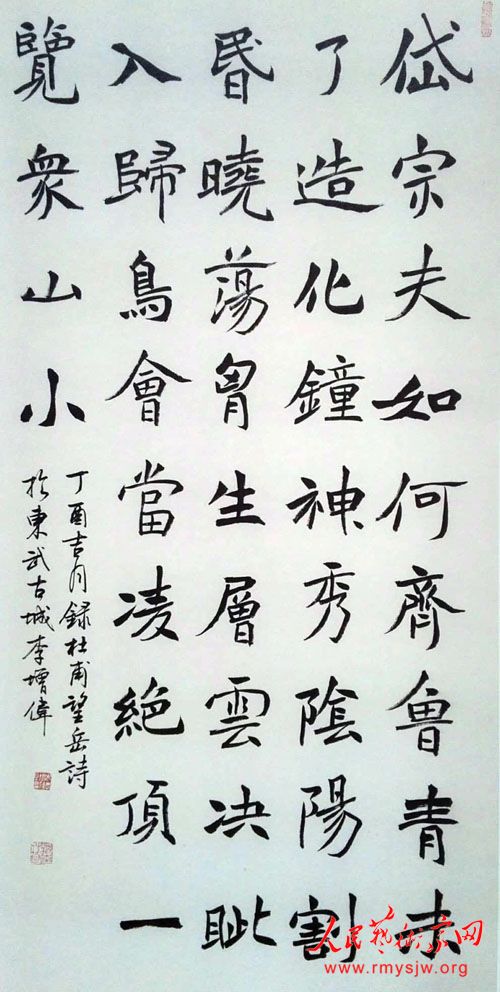 岱宗夫如何齊魯青未
了造化鐘神秀陰陽割
昬曉蕩胷生層雲决眦
入歸鳥會當凌絶頂一
覽衆山小
丁酉吉月録杜甫望岳詩
於東武古城李增偉
人民艺术家网
www.rmysjw.org